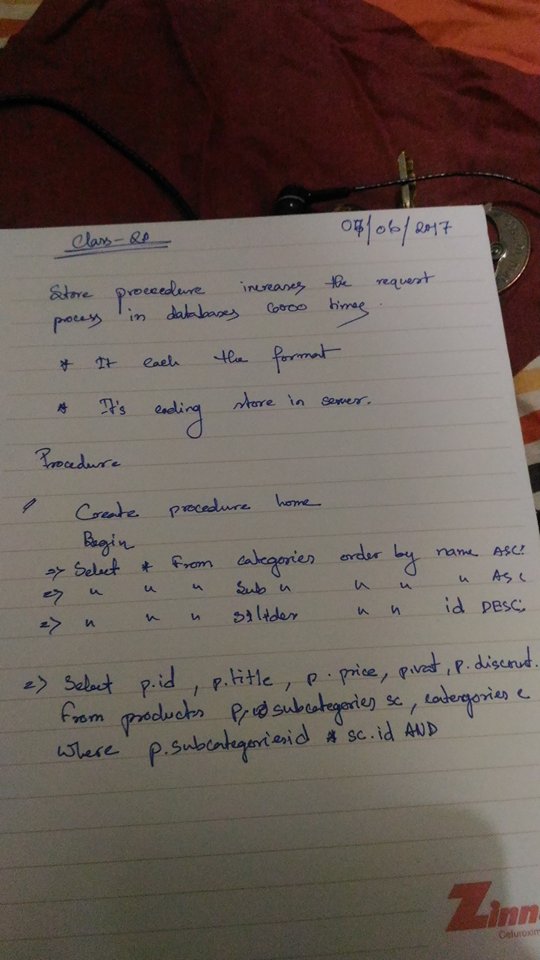 Class-20
07/06/2017
Store proceedure increases the request
process in databases 6000 times.
* It each the format
* It's ending store in server.
Procedure
Create procedure home
Begin
=> Select * from categories order by name ASC;
=> " " " Sub " " " " ASC
=> " " " Sliider " " id DESC;
=> Select p.id, p.title, p.price, p.vat, p.discount.
from products p, subcategories sc, catergories c
where p.subcategoriesid = sc.id AND
Zinn
Cefuroxim